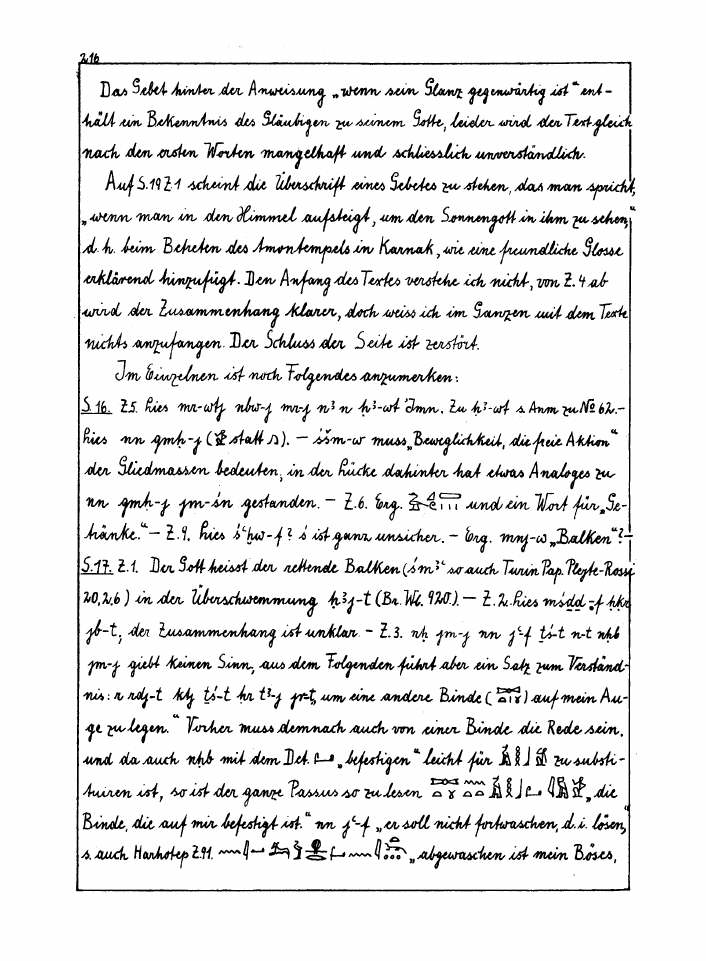 216
Das Gebet hinter der Anweisung „wenn sein Glanz gegenwärtig ist" ent-
hält ein Bekenntnis des Gläubigen zu seinem Gotte, leider wird der Text gleich
nach den ersten Worten mangelhaft und schliesslich unverständlich.
Auf S.19 Z1 scheint die Überschrift eines Gebetes zu stehen, das man spricht,
„wenn man in den Himmel aufsteigt, um den Sonnengott in ihm zu sehen,"
d. h. beim Betreten des Amontempels in Karnak, wie eine freundliche Glosse
erklärend hinzufügt. Den Anfang des Textes verstehe ich nicht, von Z. 4 ab
wird der Zusammenhang klarer, doch weiss ich im Ganzen mit dem Texte
nichts anzufangen. Der Schluss der Seite ist zerstört.
Im Einzelnen ist noch Folgendes anzumerken:
S.16. Z5. lies mr-wtj nbw-j mr-j n³ n ḥ³-wt Imn. Zu ḥ³-wt s. Anm zu No 62.-
lies nn gmḥ-j ( statt ). — śšm-w muss „Beweglichkeit, die freie Aktion"
der Gliedmassen bedeuten, in der Lücke dahinter hat etwas Analoges zu
nn gmh-j jm-śn gestanden. — Z.6. Erg. und ein Wort für „Ge-
tränke." — Z.9. lies ś ist ganz unsicher. — Erg. mnj-w „Balken"? —
S.17. Z.1. Der Gott heisst der rettende Balken (śm³ʿ so auch Turin Pap. Pleyte-Rossi
20,2.6) in der Überschwemmung ḥ³j-t (Br. Wb. 920.). — Z.2. lies mśdd -f ḥkr
jb-t, der Zusammenhang ist unklar. - Z.3. nḥ jm-j nn jʿ-f ṯś-t n-t nḥb
jm-j giebt keinen Sinn, aus dem Folgenden führt aber ein Satz zum Verständ-
nis: r rdj-t ktj ṯś-t ḥr t³-j jr-t, um eine andere Binde ( ) auf mein Au-
ge zu legen." Vorher muss demnach auch von einer Binde die Rede sein,
und da auch nḥb mit dem Det. „befestigen" leicht für zu substi-
tuiren ist, so ist der ganze Passus so zu lesen „die
Binde, die auf mir befestigt ist." nn jʿ-f „er soll nicht fortwaschen, d. i. lösen,"
s. auch Harhotep Z.91. „abgewaschen ist mein Böses,